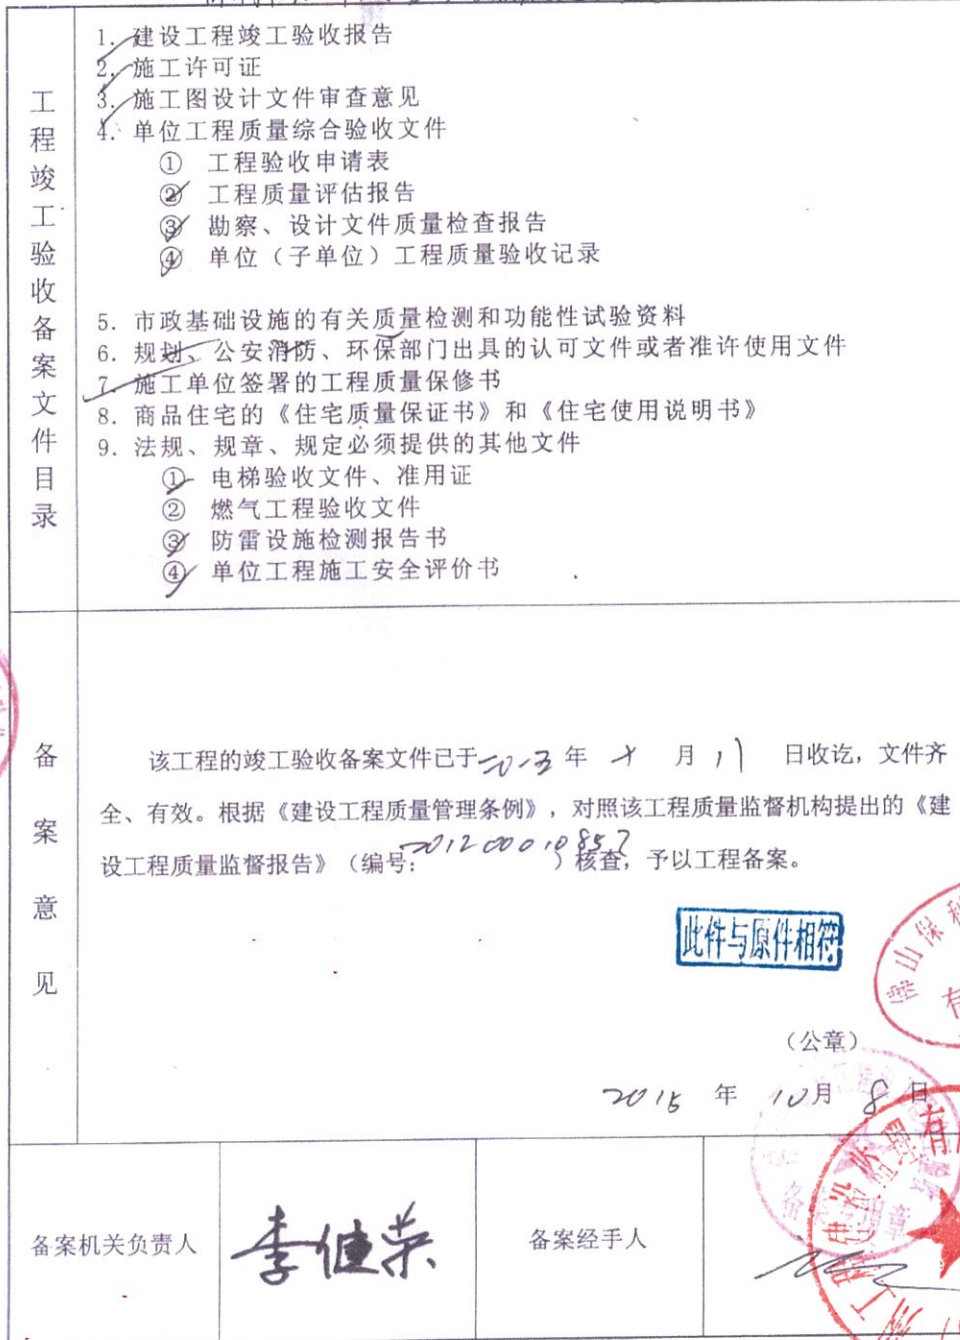 工程竣工验收备案文件目录
1. 建设工程竣工验收报告
2. 施工许可证
3. 施工图设计文件审查意见
4. 单位工程质量综合验收文件
① 工程验收申请表
② 工程质量评估报告
③ 勘察、设计文件质量检查报告
④ 单位（子单位）工程质量验收记录
5. 市政基础设施的有关质量检测和功能性试验资料
6. 规划、公安消防、环保部门出具的认可文件或者准许使用文件
7. 施工单位签署的工程质量保修书
8. 商品住宅的《住宅质量保证书》和《住宅使用说明书》
9. 法规、规章、规定必须提供的其他文件
① 电梯验收文件、准用证
② 燃气工程验收文件
③ 防雷设施检测报告书
④ 单位工程施工安全评价书
备案意见
该工程的竣工验收备案文件已于 年 月 11 日收讫，文件齐
全、有效。根据《建设工程质量管理条例》，对照该工程质量监督机构提出的《建
设工程质量监督报告》（编号: ）核查，予以工程备案。
此件与原件相符
佛山保利
有
（公章）
年 10月 8日
监理有
备案机关负责人
李健荣
备案经手人